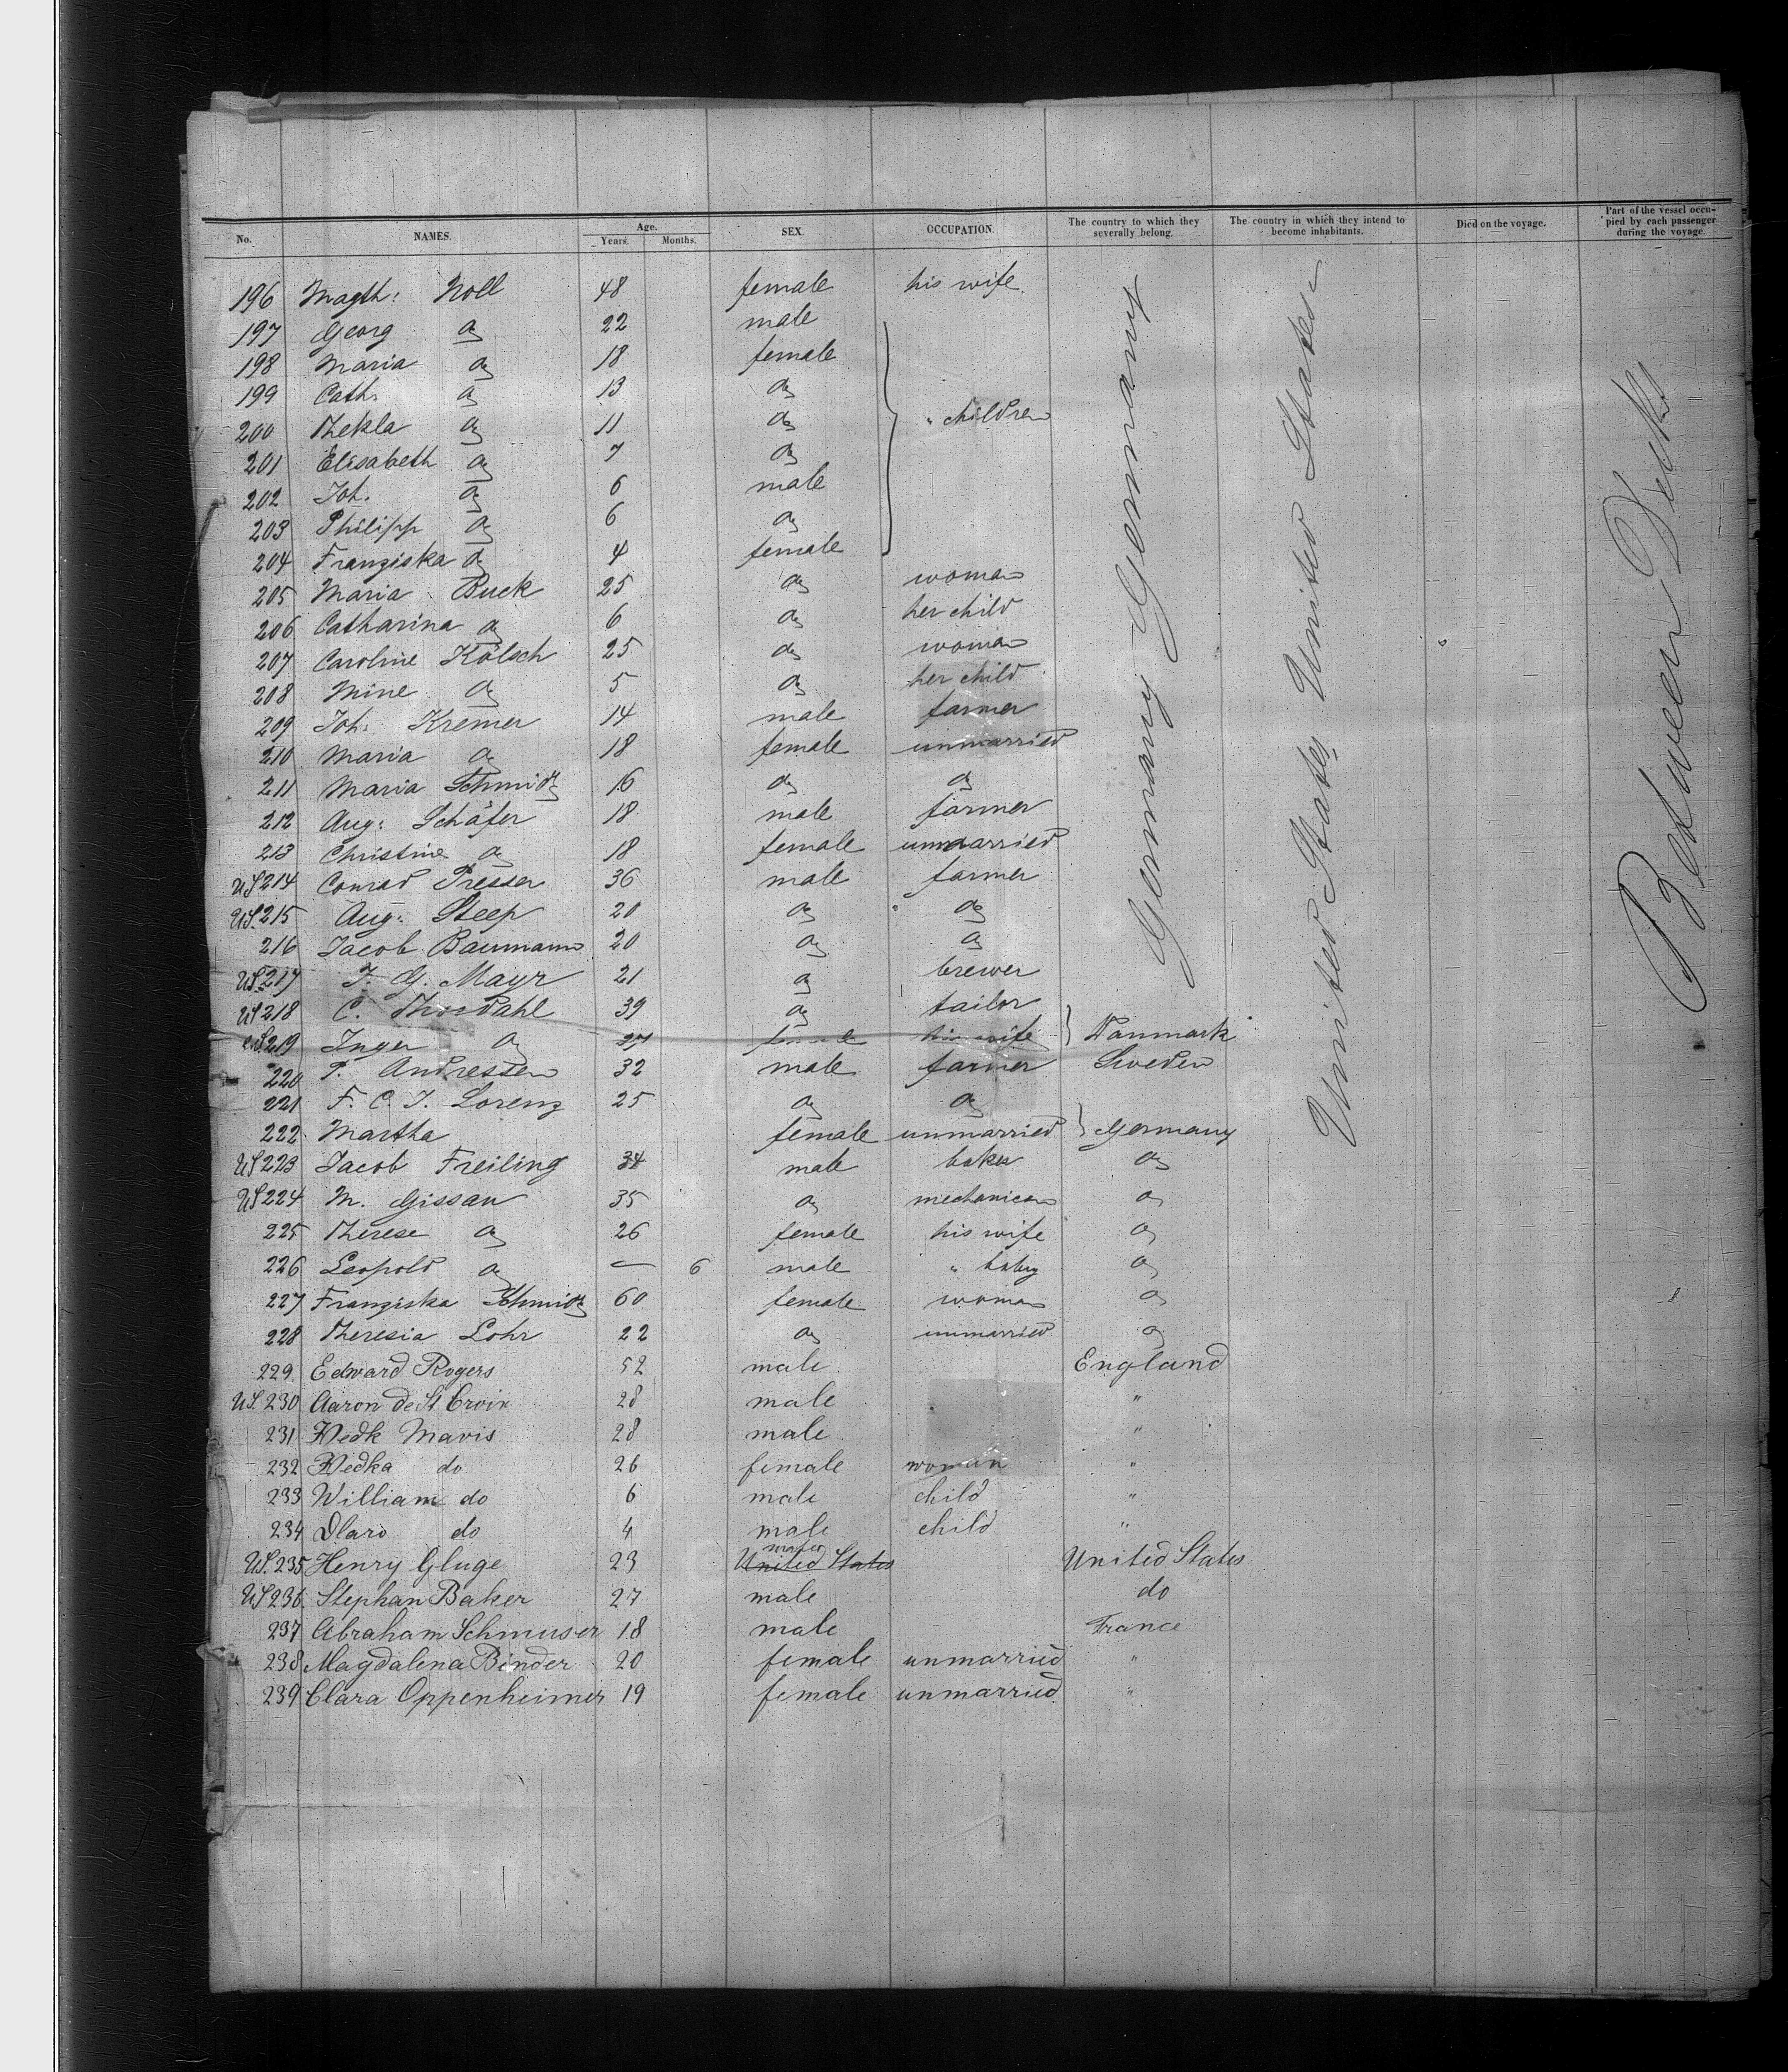 No. NAMES. Age. Years. Months. SEX. OCCUPATION. The country to which they severally belong. The country in which they intend to become inhabitants. Died on the voyage. Part of the vessel occupied by each passenger during the voyage
196 Magth: Noll 48 female his wife
197 Georg do 22 male
198 Maria do 18 female
199 Cath. do 13 do
200 Thekla do 11 do " children
201 Elisabeth do 7 do
202 Joh. do 6 male
203 Philipp do 6 do
204 Franziska do 4 female
205 Maria Buck 25 do woman
206 Catharina do 6 do her child
207 Caroline Kölsch 25 do woman
208 Mine do 5 do her child
209 Joh. Kremer 14 male farmer
210 Maria do 18 female unmarried
211 Maria Schmidt 16 do do
212 Aug: Schäfer 18 male farmer
213 Christine do 18 female unmarried
US 214 Conrad Presser 36 male farmer
US. 215 Aug: Steep 20 do do
216 Jacob Baumann 20 do do
US. 217 J. G. Mayr 21 do brewer
US 218 C. Thordahl 39 do tailor
US. 219 Inger do 27 female his wife } Danmark
220 P. Andressen 32 male farmer Sweden
221 F. C. J. Lorenz 25 do do
222. Martha female unmarried } Germany
US 223 Jacob Freiling 34 male baker do
US 224 M. Gissan 35 do mechanican do
225 Therese do 26 female his wife do
226 Leopold do — 6 male " baby do
227 Franziska Schmidt 60 female woman do
228 Theresia Lohr 22 do unmarried do
229. Edward Rogers 52 male England
US. 230 Aaron de St Croix 28 male "
231 Hedk Mavis 28 male "
232 Hedka do 26 female woman "
233 William do 6 male child "
234 Olaro do 4 male child "
US. 235 Henry Gluge 23 United States male United States
US 236 Stephan Baker 27 male do
237 Abraham Schmuser 18 male France
238 Magdalena Binder 20 female unmarried "
239 Clara Oppenheimer 19 female unmarried "
Germany Germany
United States United States
Between Decks